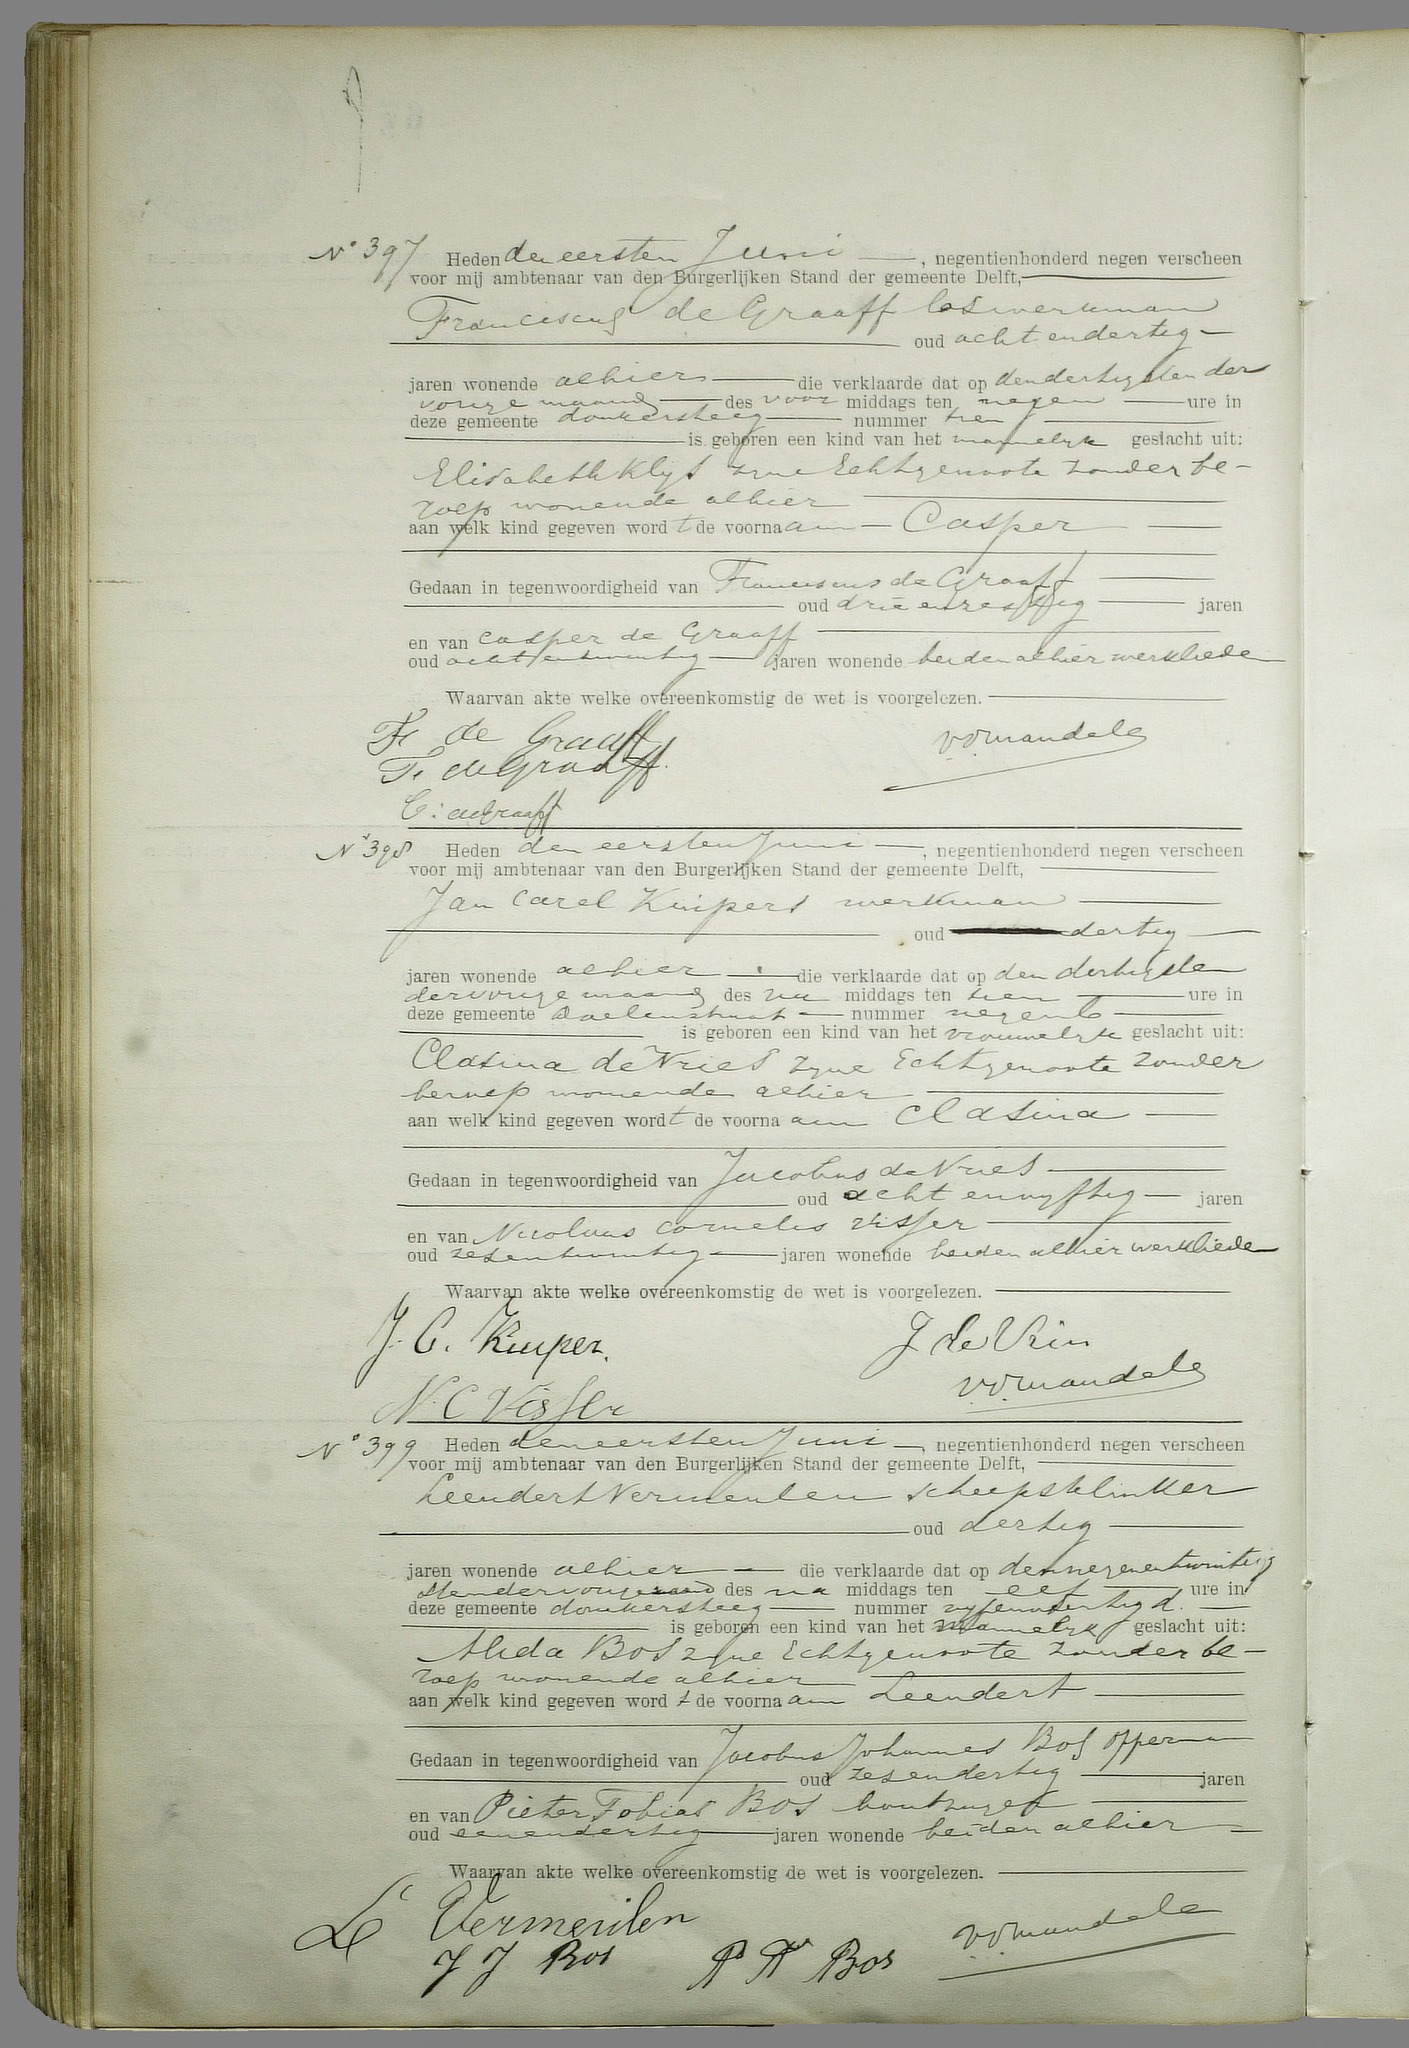 N° 397 Heden den eersten Juni —, negentienhonderd negen verscheen
voor mij ambtenaar van den Burgerlijken Stand der gemeente Delft,
Franciscus de Graaff los werkman
oud acht en dertig
jaren wonende alhier die verklaarde dat op den dertigsten der
vorige maand des voor middags ten negen ure in
deze gemeente donkersteeg nummer tien
is geboren een kind van het mannelyk geslacht uit:
Elisabeth Klijs zyne Echtgenoote zonder be-
roep wonende alhier
aan welk kind gegeven wordt de voornaam Casper
Gedaan in tegenwoordigheid van Franciscus de Graaff
oud drie en zestig jaren
en van Casper de Graaff
oud acht en twintig jaren wonende beiden alhier werklieden
Waarvan akte welke overeenkomstig de wet is voorgelezen.
Fr de Graaff vdmandele
Fr de Graaff.
C: de Graaff
N° 398 Heden den eersten Juni —, negentienhonderd negen verscheen
voor mij ambtenaar van den Burgerlijken Stand der gemeente Delft,
Jan Carel Kuipers werkman
oud dertig
jaren wonende alhier die verklaarde dat op den dertigsten
der vorige maand des na middags ten tien ure in
deze gemeente Doelenstraat nummer negen b
is geboren een kind van het vrouwelyk geslacht uit:
Clasina de Vries zyne Echtgenoote zonder
beroep wonende alhier
aan welk kind gegeven wordt de voornaam Clasina
Gedaan in tegenwoordigheid van Jacobus de Vries
oud acht en vyftig jaren
en van Nicolaas Cornelis Visser
oud zesentwintig jaren wonende beiden alhier werklieden
Waarvan akte welke overeenkomstig de wet is voorgelezen.
J. C. Kuiper. J de Vries
N. C Visser vdmandele
N° 399 Heden den eersten Juni —, negentienhonderd negen verscheen
voor mij ambtenaar van den Burgerlijken Stand der gemeente Delft,
Leendert Vermeulen scheepsklinker
oud dertig
jaren wonende alhier die verklaarde dat op den negenentwintig
sten der vorige maand des na middags ten elf ure in
deze gemeente donkersteeg nummer vyfentwintig d.
is geboren een kind van het mannelyk geslacht uit:
Alida Bos zyne Echtgenoote zonder be-
roep wonende alhier
aan welk kind gegeven wordt de voornaam Leendert
Gedaan in tegenwoordigheid van Jacobus Johannes Bos opperman
oud zesendertig jaren
en van Pieter Tobias Bos houtzager
oud eenendertig jaren wonende beiden alhier
Waarvan akte welke overeenkomstig de wet is voorgelezen.
L Vermeulen vdmandele
J J Bos P Ts Bos